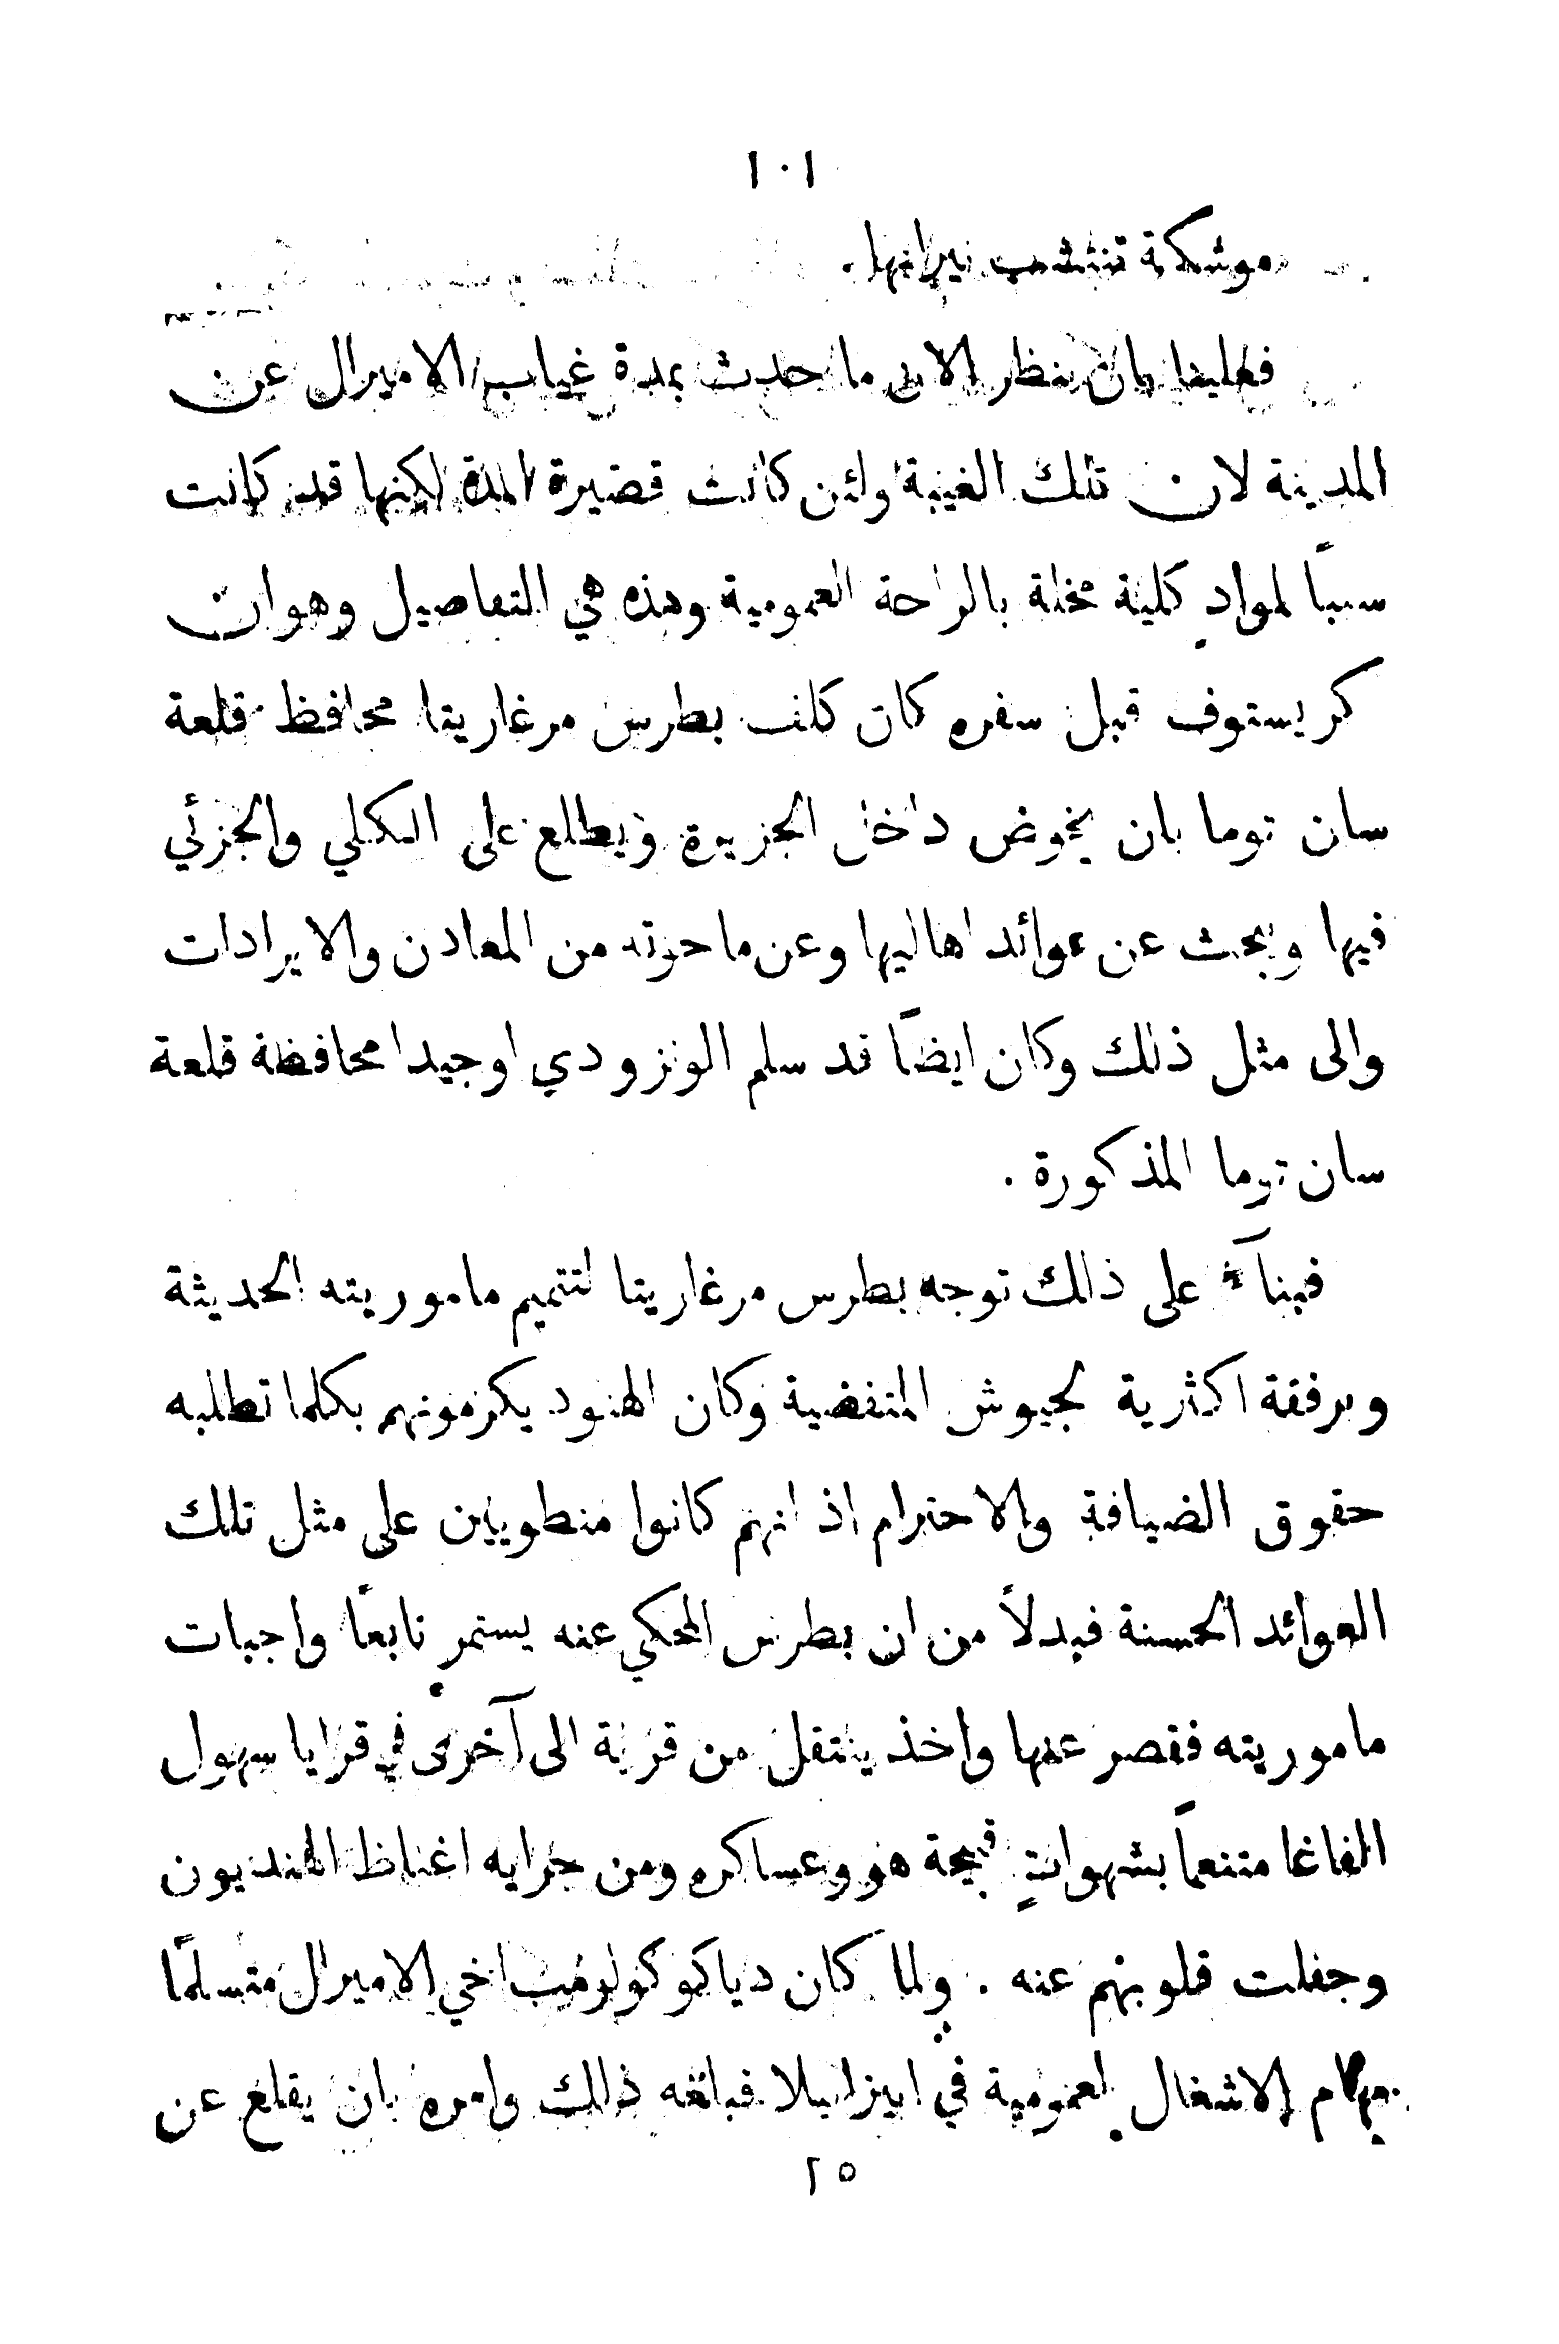 ١٠١
موشكة تنتشب نيرانها.
فعلينا بان ننظر الان ما حدث بمدة غياب الاميرال عن
المدينة لان تلك الغيبة ولئن كانت قصيرة المدة لكنها قد كانت
سببًا لموادٍ كلية مخلة بالراحة العمومية وهذه هي التفاصيل وهوان
كريستوف قبل سفره كان كلف بطرس مرغاريتا محافظ قلعة
سان توما بان يخوض داخل الجزيرة ويطلع على الكلي والجزئي
فيها ويبحث عن عوائد اهاليها وعن ما حوته من المعادن والايرادات
والى مثل ذلك وكان ايضًا قد سلم الونزو دي اوجيدا محافظة قلعة
سان توما المذكورة .
فبناءً على ذلك توجه بطرس مرغاريتا لتتميم ماموريته الحديثة
وبرفقة اكثرية لجيوش المتفضية وكان الهنود يكرمونهم بكلما تطلبه
حقوق الضيافة والاحترام اذ انهم كانوا منطويين على مثل تلك
العوائد الحسنة فبدلاً من ان بطرس المحكي عنه يستمر تابعًا واجبات
ماموريته فقصر عنها واخذ ينتقل من قرية الى آخرى في قرايا سهول
الفاغا متنعمًا بشهواتٍ قبيحة هو وعساكره ومن جرايه اغتاظ الهنديون
وجفلت قلوبهم عنه . ولما كان دياكو كولومب اخي الاميرال متسلمًا
مهام الاشغال لعمومية في ايزابيلا فبالغه ذلك وامره بان يقلع عن
٢٥